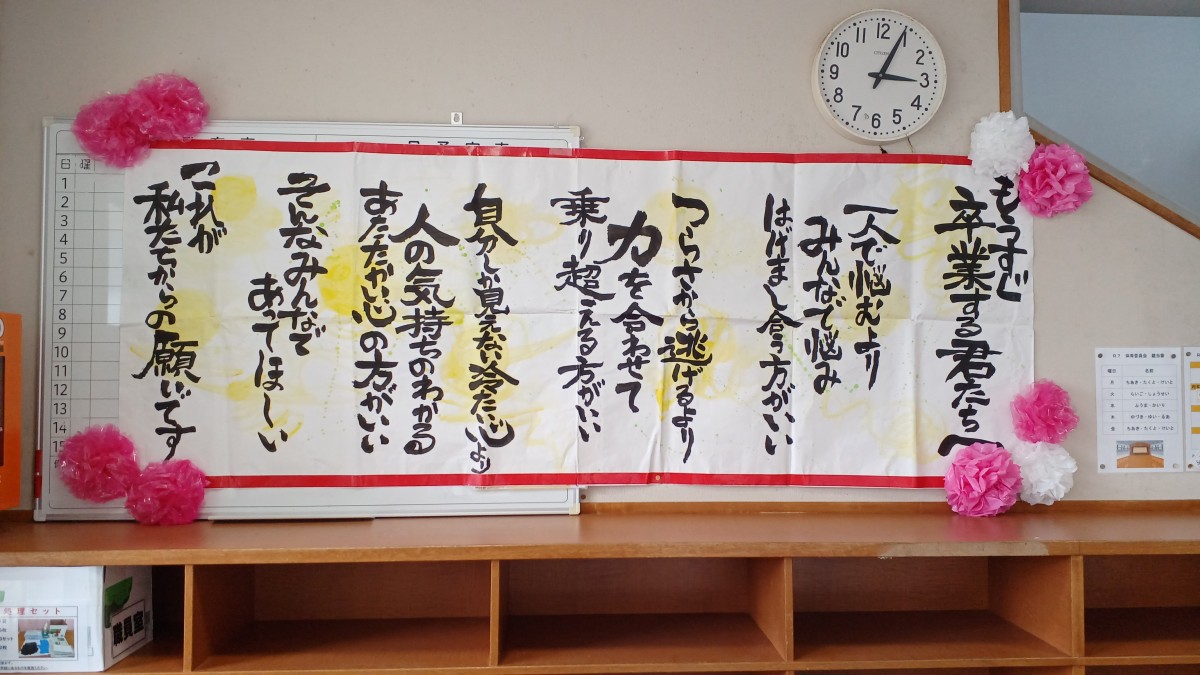 もうすぐ
卒業する君たちへ
一人で悩むより
みんなで悩み
はげまし合う方がいい
つらさから逃げるより
力を合わせて
乗り超える方がいい
自分しか見えない冷たい心より
人の気持ちのわかる
あたたかい心の方がいい
そんなみんなで
あってほしい
これが
私たちからの願いです
12
1
2
3
4
5
6
7
8
9
10
11
日 曜
1
2
3
4
5
6
7
8
9
10
11
12
13
14
15
曜日 名前
月
火
水
木
金
処理セット
職員室